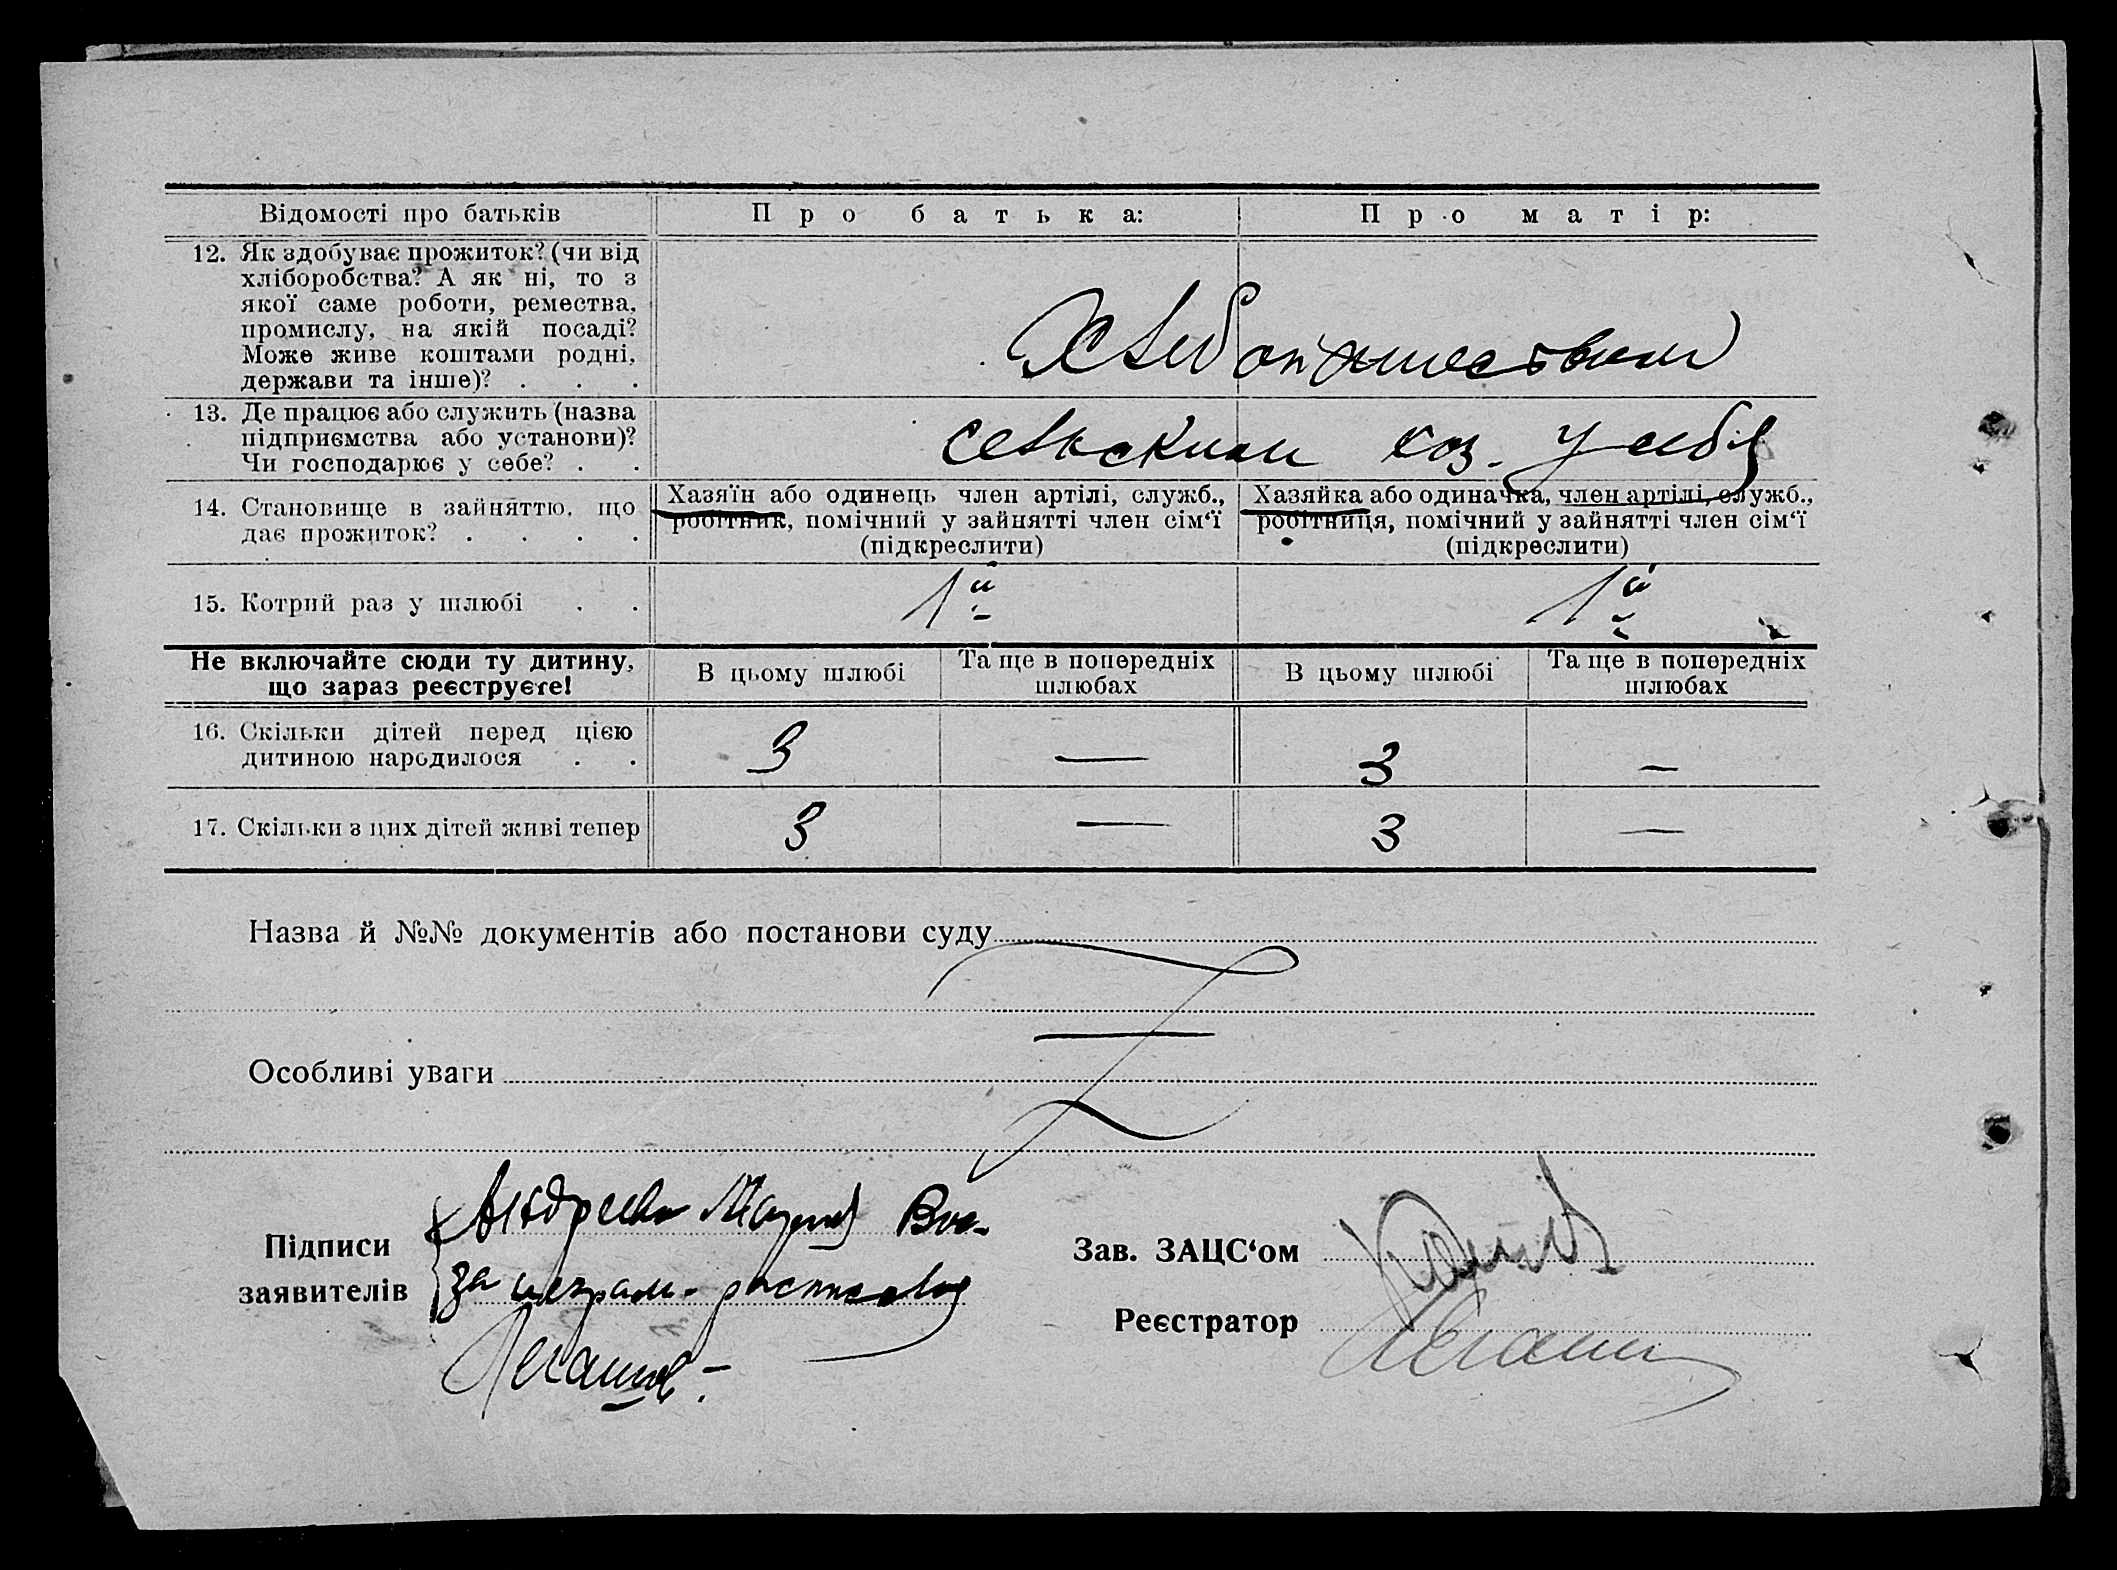 Відомості про батьків
Про батька:
Про матір:
12. Як здобуває прожиток? (чи від
хліборобства? А як ні, то з
якої саме роботи, ремества,
промислу, на якій посаді?
Може живе коштами родні,
держави та інше)? . . .
Хлебопашеством
13. Де працює або служить (назва
підприємства або установи)?
Чи господарює у себе? . .
сельским хоз. у себя
14. Становище в зайняттю, що
дає прожиток? . . . .
Хазяїн або одинець член артілі, служб.,
робітник, помічний у зайнятті член сім‘ї
(підкреслити)
Хазяйка або одиначка, член артілі, служб.,
робітниця, помічний у зайнятті член сім‘ї
(підкреслити)
15. Котрий раз у шлюбі . .
1й
1й
Не включайте сюди ту дитину,
що зараз реєструєте!
В цьому шлюбі
Та ще в попередніх
шлюбах
В цьому шлюбі
Та ще в попередніх
шлюбах
16. Скільки дітей перед цією
дитиною народилося . .
3 — 3 —
17. Скільки з цих дітей живі тепер
3 — 3 —
Назва й №№ документів або постанови суду
Особливі уваги
Підписи
заявителів
Андреева Мария
за неграм. расписался
Зав. ЗАЦС‘ом
Реєстратор